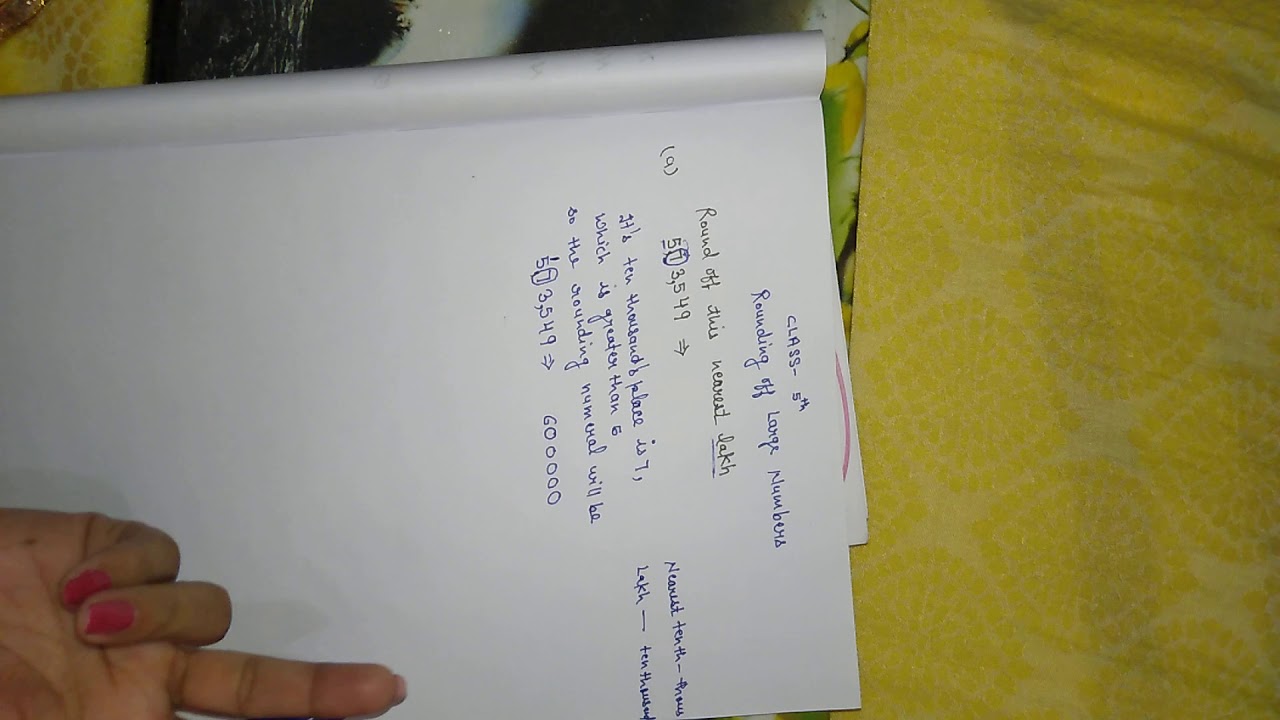 CLASS- 5th
Rounding off Large Numbers
Round off this nearest lakh
(a) 573,549 ⇒
It's ten thousand's place is 7,
which is greater than 5
so the rounding numeral will be
573,549 ⇒ 600000
Nearest tenth-thous
Lakh — ten thousand